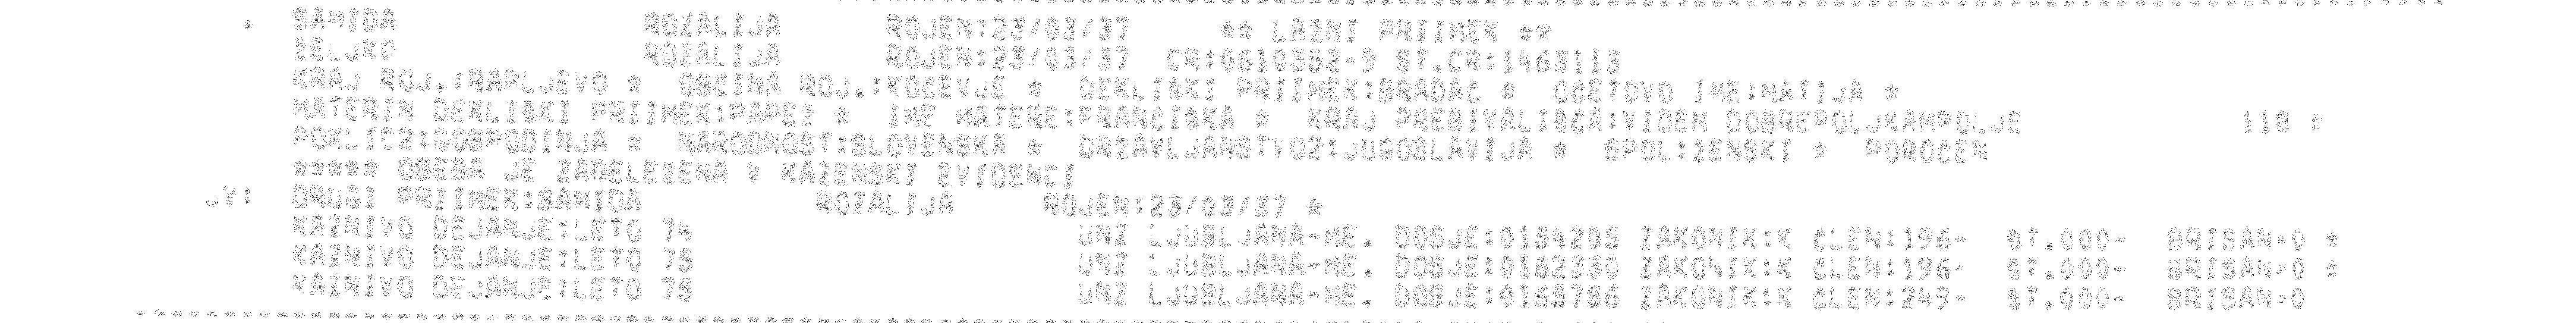 * SAMIDA ROZALIJA ROJEN:23/03/37 ** LAZNI PRIIMEK **
ZELJKO ROZALIJA ROJEN:23/03/37 CR:0610362-9 ST.CR:1463113
KRAJ ROJ.:RAPLJEVO * OBCINA ROJ.:KOCEVJE * DEKLISKI PRIIMEK:BRADAC * OCETOVO IME:MATIJA *
MATERIN DEKLISKI PRIIMEK:PAPEZ * IME MATERE:FRANCISKA * KRAJ PREBIVALISCA:VIDEM DOBREPOLJKAMPOLJE 118 *
POKLIC2:GOSPODINJA * NARODNOST:SLOVENSKA * DRZAVLJANSTVO2:JUGOSLAVIJA * SPOL:ZENSKI * POROCEN
***** OSEBA JE ZABELEZENA V KAZENSKI EVIDENCI
DRUGI PRIIMEK:SAMIDA ROZALIJA ROJEN:23/03/37 *
KAZNIVO DEJANJE:LETO 74 UNZ LJUBLJANA-ME. DOSJE:0154205 ZAKONIK:K CLEN:196- ST.000- BRISAN-0 *
KAZNIVO DEJANJE:LETO 75 UNZ LJUBLJANA-ME. DOSJE:0162330 ZAKONIK:K CLEN:196- ST.000- BRISAN-0 *
KAZNIVO DEJANJE:LETO 75 UNZ LJUBLJANA-ME. DOSJE:0165786 ZAKONIK:K CLEN:249- ST.000- BRISAN-0